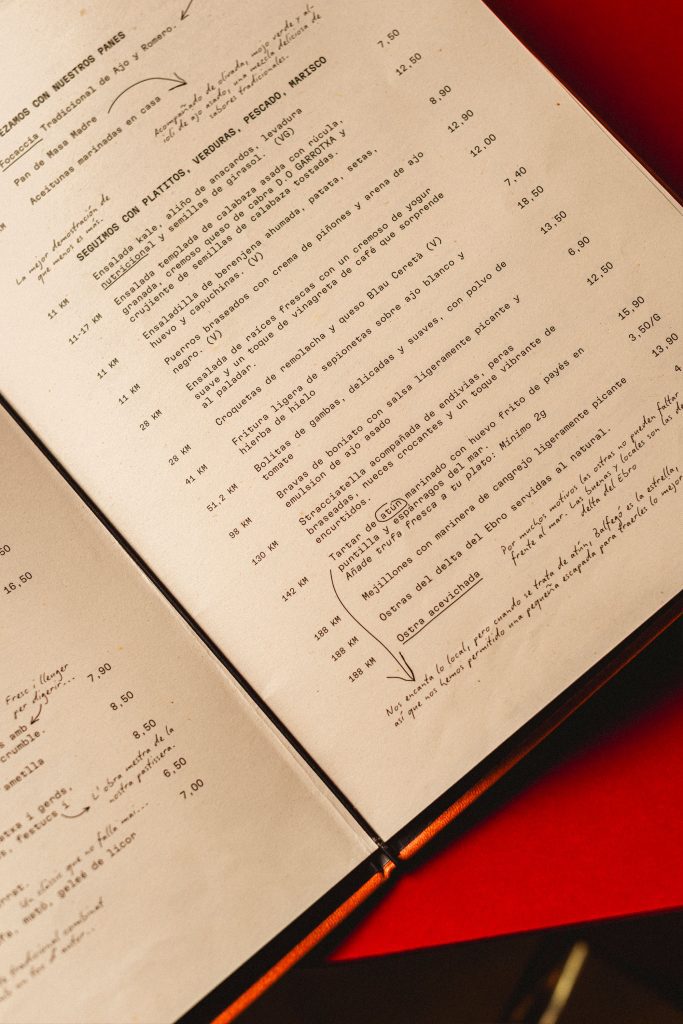 EZAMOS CON NUESTROS PANES
Focaccia Tradicional de Ajo y Romero.
Pan de Masa Madre
Acompañado de olivada, mojo verde y al-
ioli de ajo asado, una mezcla deliciosa de
sabores tradicionales.
Aceitunas marinadas en casa
KM
La mejor demostración de
que menos es más.
SEGUIMOS CON PLATITOS, VERDURAS, PESCADO, MARISCO
11 KM Ensalada kale, aliño de anacardos, levadura 7,50
nutricional y semillas de girasol. (VG)
11-17 KM Ensalada templada de calabaza asada con rúcula, 12,50
granada, cremoso queso de cabra D.O GARROTXA y
crujiente de semillas de calabaza tostadas.
11 KM Ensaladilla de berenjena ahumada, patata, setas, 8,90
huevo y capuchinas. (V)
11 KM Puerros braseados con crema de piñones y arena de ajo 12,90
negro. (V)
28 KM Ensalada de raíces frescas con un cremoso de yogur 12,00
suave y un toque de vinagreta de café que sorprende
al paladar.
28 KM Croquetas de remolacha y queso Blau Ceretà (V) 7,40
41 KM Fritura ligera de sepionetas sobre ajo blanco y 18,50
hierba de hielo
51.2 KM Bolitas de gambas, delicadas y suaves, con polvo de 13,50
tomate
98 KM Bravas de boniato con salsa ligeramente picante y 6,90
emulsion de ajo asado
130 KM Stracciatella acompañada de endivias, peras 12,50
braseadas, nueces crocantes y un toque vibrante de
encurtidos.
142 KM Tartar de atún marinado con huevo frito de payés en 15,90
puntilla y espárragos del mar.
Añade trufa fresca a tu plato: Mínimo 2g 3,50/G
188 KM Mejillones con marinera de cangrejo ligeramente picante 13,90
188 KM Ostras del delta del Ebro servidas al natural. 4
188 KM Ostra acevichada
Por muchos motivos las ostras no pueden faltar
frente al mar. Las buenas y locales son las de
delta del Ebro
Nos encanta lo local, pero cuando se trata de atún, Balfegó es la estrella,
así que nos hemos permitido una pequeña escapada para traerles lo mejor
50
16,50
Fresc i lleuger
per digerir...
7,90
s amb
crumble.
8,50
ametlla
8,50
L'obra mestra de la
nostra pastissera.
6,50
i gerds,
festucs i
7,00
Un clàssic que no falla mai...
mató, geleé de licor
tradicional combinat